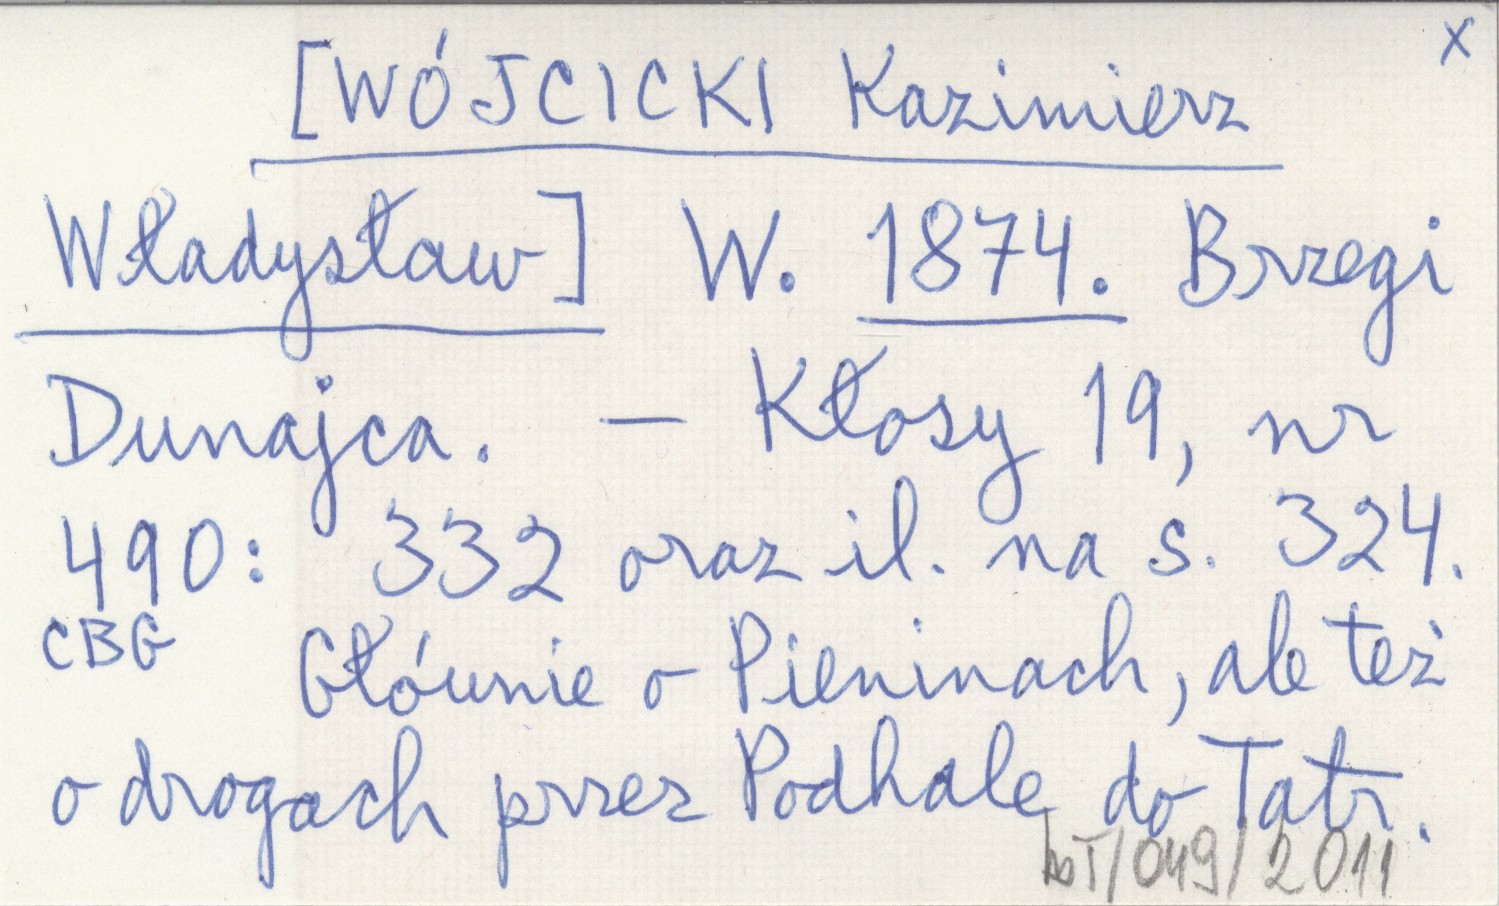 x
[WÓJCICKI Kazimierz
Władysław] W. 1874. Brzegi
Dunajca. – Kłosy 19, nr
490: 332 oraz il. na s. 324.
CBG Głównie o Pieninach, ale też
o drogach przez Podhale do Tatr.
/049/2011